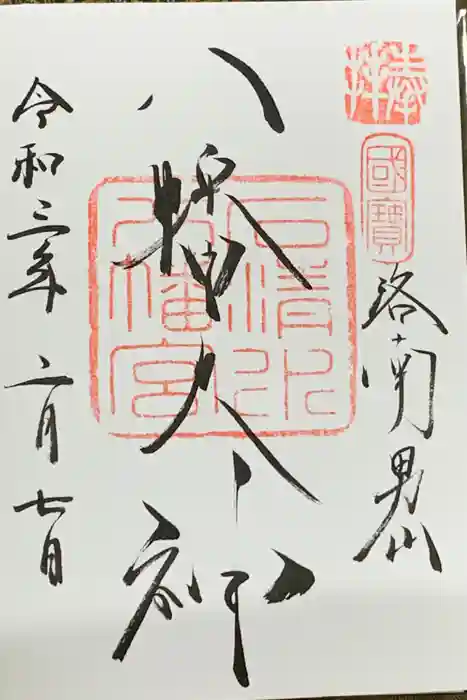 奉拝
國寶
洛南男山
八幡大神
石清水
八幡宮
令和三年 二月七日